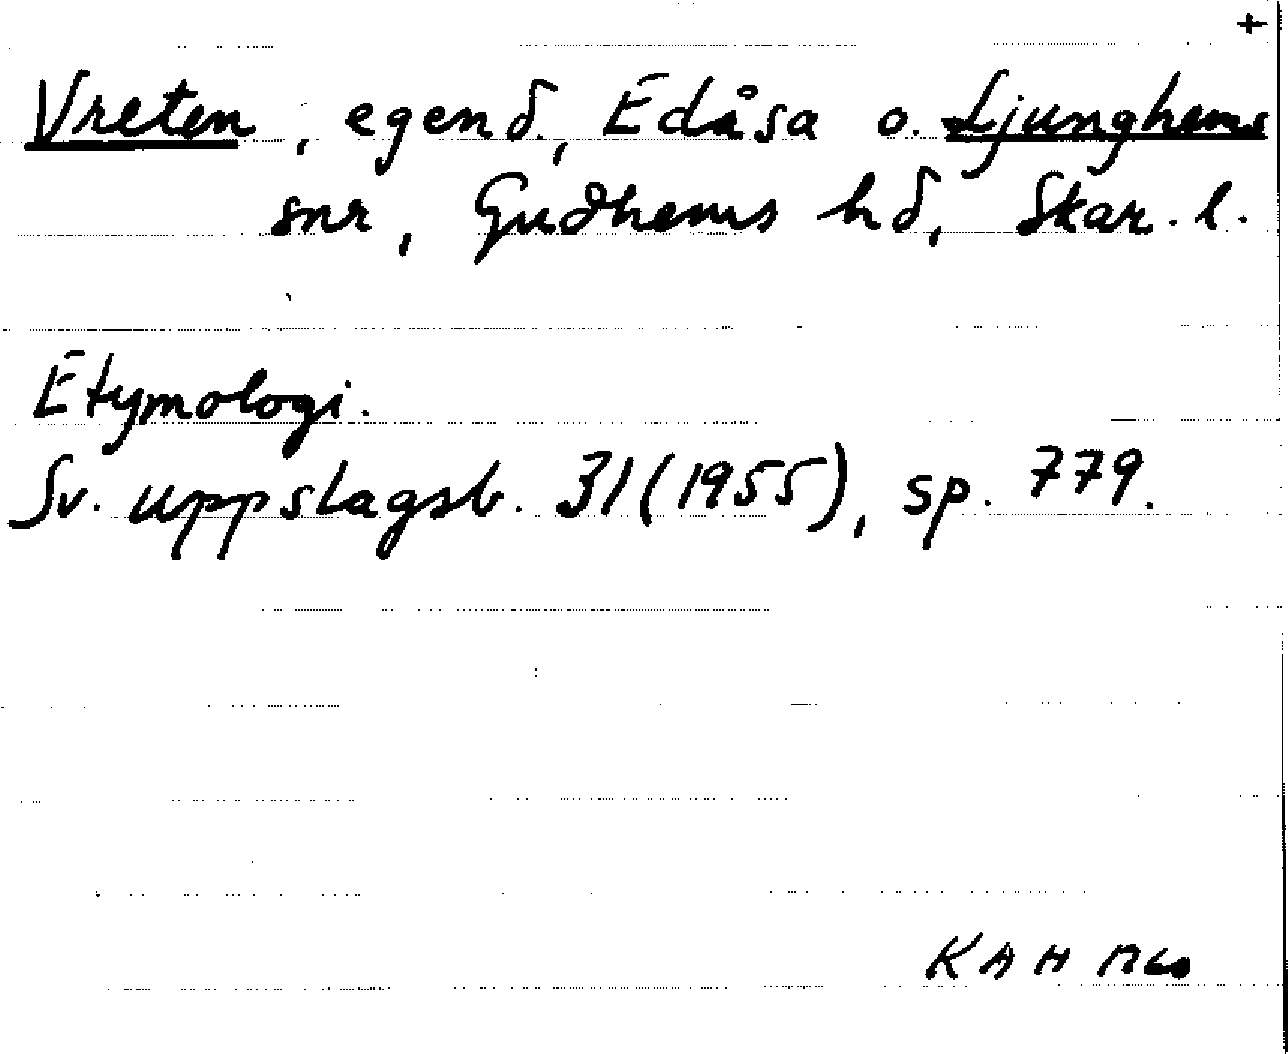 +
Vreten, egend, Edåsa o. Ljunghems
snr, Gudhems hd, Skar. l.
Etymologi.
Sv. uppslagsb. 31 (1955), sp. 779.
KAH 1960